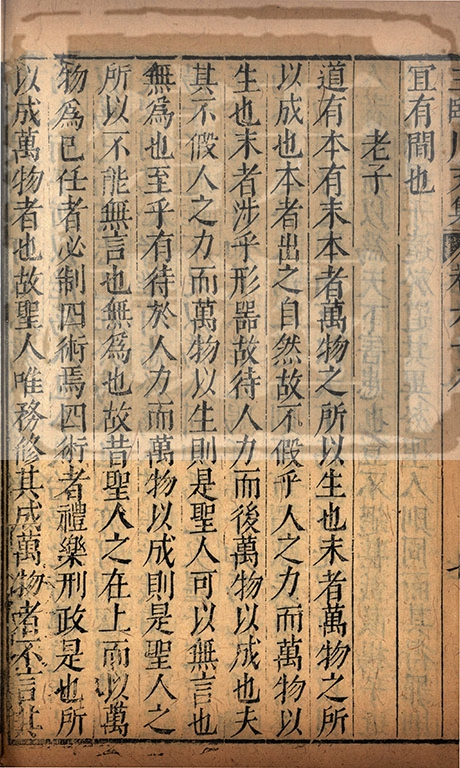 宜有間也
老子
道有本有末本者萬物之所以生也末者萬物之所
以成也本者出之自然故不假乎人之力而萬物以
生也末者涉乎形器故待人力而後萬物以成也夫
其不假人之力而萬物以生則是聖人可以無言也
無為也至乎有待於人力而萬物以成則是聖人之
所以不能無言也無為也故昔聖人之在上而以萬
物為己任者必制四術焉四術者禮樂刑政是也所
以成萬物者也故聖人唯務修其成萬物者不言其